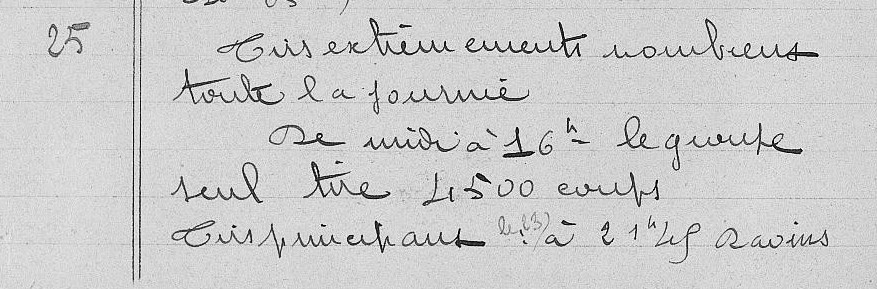 25 Tirs extrêmements nombreux
toute la journée
De midi à 16h le groupe
seul tire 4500 coups
Tirs principaux (le 23) à 21h45 Ravins